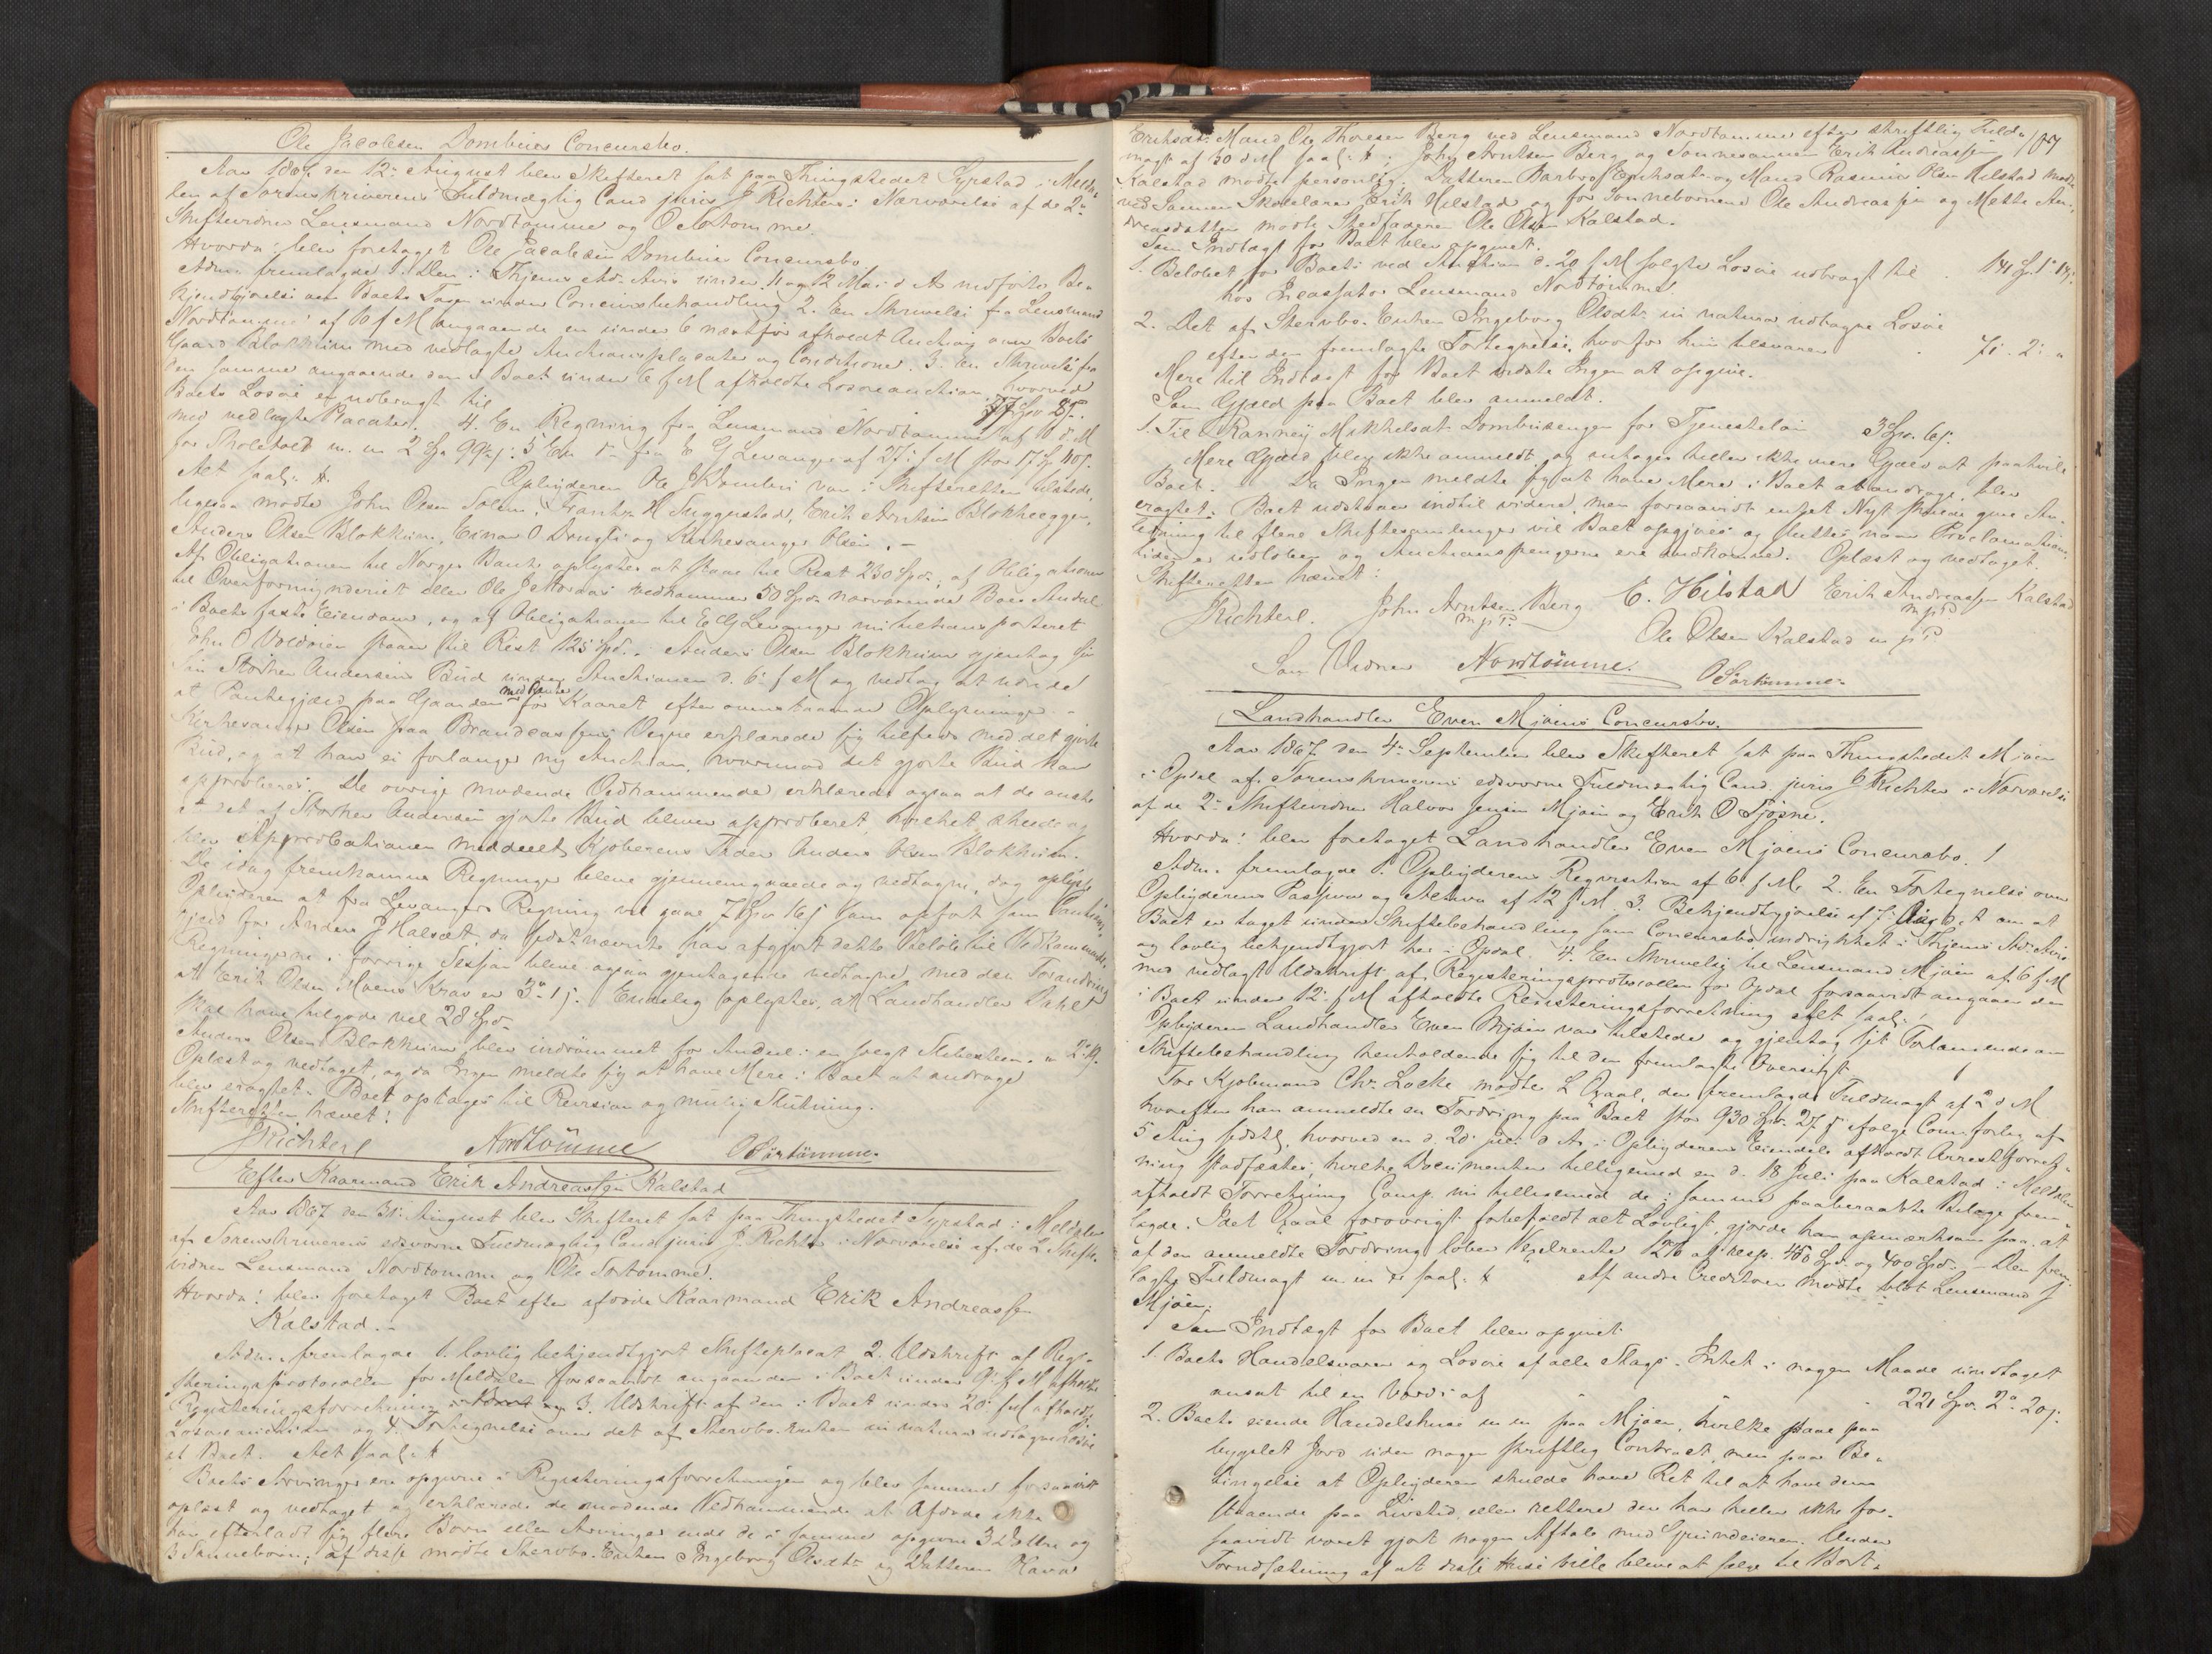 Ole Jacobsen Dombuies Concursbo.
Aar 1867 den 12te August blev Skifteret sat paa Thingstedet Syrstad i Melda-
len af Sorenskriverens Fuldmægtig Cand juris J Richter i Nærværelse af de 2de
Skiftevidner Lensmand Nordtømme og O Sørtømme.
Hvorda: blev foretaget Ole Jacobsen Dombuies Concursbo
Adm. fremlagde 1. Den i Thjems Ad. Avis under 11 og 12 Mai d A indførte Be-
kjendtgjørelse om Boets Tagen under Concursbehandling 2. En Skrivelse fra Lensmand
Nordtømme af 10 f M angaaende en under 6 næstfør afholdt Auction over Boets
Gaard Blokhuim med vedlagte Auctionsplacater og Conditioner. 3. En Skrivelse fra
den samme angaaende den i Boet under 6 f M afholdte Løsøreauction, hvorved
Boets Løsøre er udbragt til 77 Spd 2 #.
med vedlagte Placater. 4. En Regning fra Lensmand Nordtømme af 10 d. M
for Skoletold m. m 2 Sp 99 s. 5 En do fra E G Levanger af 27 f M stor 17 Sp 40 s.
Alt saal.
Opbyderen Ole J Dombui var i Skifteretten tilstede,
ligesaa mødte John Olsen Solem, Frants H Snuggerstad, Erik Arntsen Blokheeggen,
Anders Olsen Blokhuim, Einar O Drugli og Kirkesanger Olsen. -
Af Obligationen til Norges Bank oplystes at staae til Rest 230 Spd., af Obligationen
til Overformynderiet eller Ole J vedkommer 50 Spd. nærværende Boes Andel
i Boets faste Eiendom, og af Obligationen til E G Levanger nu transporteret
John O Voldøien staaer til Rest 125 Spd. Anders Olsen Blokhuim gjentog sin
Søn Størker Andersens Bud under Auctionen d. 6te f M og vedtog at udrede
al Pantegjæld paa Gaarden med Renter for Kaaret efter ovenstaaende Oplysninger -
Kirkesanger Olsen paa Brandcassens Vegne erklærede sig tilfreds med det gjorte
Bud, og at han ei forlanger ny Auction, hvorimod det gjorte Bud kan
approberes. De øvrige mødende Vedkommende erklærede ogsaa at de ønske
at det af Størker Andersen gjorte Bud bliver approberet, hvilket skeede og
blev Approbationen meddeelt Kjøberens Fader Anders Olsen Blokhuim.
De idag fremkomne Regninger bleve gjennemgaaede og vedtagne, dog oplyste
Opbyderen at fra Levangers Regning vil gaae 7 Spd 16 s som opført som Cautions-
gjæld for Anders J Halsæt, da sidstnævnte har afgjort dette Beløb til Vedkommende.
Regningerne i forrige Session bleve ogsaa gjentagende vedtagne, med den Forandring
at Erik Olsen Moens Krav er 3 # 1 s. Endelig oplystes, at Landhandler Dahl
skal have tilgode vel 28 Spd
Anders Olsen Blokhuim blev indrømmet for Andeel i en solgt Slibesteen. - 2 #.
Oplæst og vedtaget, og da Ingen meldte sig at have Mere i Boet at andrage
blev eragtet: Boet optages til Revision og mulig Slutning.
Skifteretten hævet:
JRichter Nordtømme OSørtømme
Efter Kaarmand Erik Andreassen Kalstad
Aar 1867 den 31te August blev Skifteret sat paa Thingstedet Syrstad i Meldalen
af Sorenskriverens edsvorne Fuldmægtig Cand juris J. Richter i Nærværelse af de 2 Skifte-
vidner Lensmand Nordtømme og Ole Sørtømme.
Hvorda: blev foretaget Boet efter afdøde Kaarmand Erik Andreassen
Kalstad. -
Adm. fremlagde 1. lovlig bekjendtgjort Skifteplacat 2. Udskrift af Regi-
streringsprotocollen for Meldalen forsaavidt angaaer den i Boet under 9 f M afholdte
Registreringsforretning, 3. Udskrift af den i Boet under 20 f M afholdte
Løsøreauction og 4. Fortegnelse over det af Stervbo-Enken in natura udtagne Løsøre
af Boet. Alt saal.
Boets Arvinger ere opgivne i Registreringsforretningen og blev samme forsaavidt
oplæst og vedtaget og erklærede de mødende Vedkommende at Afdøde ikke
har efterladt sig flere Børn eller Arvinger end de i samme opgivne 3 Døttre og
3 Sønnebørn; af disse mødte Stervbo-Enken Ingeborg Olsdtr og Datteren Karen
107
Eriksdtr Mand Ole Thoresen Berg ved Lensmand Nordtømme efter skriftlig Fuld-
magt af 30 d M saal., John Arntsen Berg og Sønnesønnen Erik Andreassen
Kalstad mødte personlig, Datteren Barbro Eriksdtr og Mand Rasmus Olsen Hilstad mødte
ved Sønnen Skolelærer Erik Hilstad og for Sønnebørnene Ole Andreassen og Mette An-
dreasdatter mødte Stedfaderen Ole Olsen Kalstad.
Som Indtægt for Boet blev opgivet.
1. Beløbet for Boets ved Auction d. 20 f M solgte Løsøre udbragt til 141 Sp. 1 # 14 s
hos Incassator Lensmand Nordtømme.
2. Det af Stervbo-Enken Ingeborg Olsdtr in natura udtagne Løsøre
efter den fremlagte Fortegnelse, hvorfor hun tilsvarer 71. 2. "
Mere til Indtægt for Boet vidste Ingen at opgive.
Som Gjæld paa Boet blev anmeldt.
1. Til Ranneÿ Mikkelsdtr Dombuisengen for Tjenesteløn 3 Sp. 60 s.
Mere Gjæld blev ikke anmeldt, og antages heller ikke mere Gjæld at paahvile
Boet. Da Ingen meldte sig at have Mere i Boet at andrage, blev
eragtet: Boet udstaaer indtil videre, men forsaavidt intet Nyt skulde give An-
ledning til flere Skiftesamlinger vil Boet opgjøres og sluttes naar Proclamations-
tiden er udløben og Auctionspengene ere indkomne. Oplæst og vedtaget.
Skifteretten hævet:
JRichter. John Arntsen Berg E. Hilstad Erik Andreassen Kalstad
m p P. m p P
Ole Olsen Kalstad m p P
Som Vidner Nordtømme. OSørtømme
Landhandler Even Mjøens Concursbo.
Aar 1867 den 4de September blev Skifteret sat paa Thingstedet Mjøen
i Opdal af Sorenskriverens edsvorne Fuldmægtig Cand. juris J Richter i Nærværelse
af de 2de Skiftevidner Halvor Jensen Mjøen og Erik O Sjøsne.
Hvorda: blev foretaget Landhandler Even Mjøens Concursbo.
Adm. fremlagde 1. Opbyderens Reqvisition af 6 f M. 2. En Fortegnelse over
Opbyderens Passiva og Activa af 12 f M. 3. Bekjendtgjørelse af 7 Aug d A om at
Boet er taget under Skiftebehandling som Concursbo indrykket i Thjems Ad. Avis
og lovlig bekjendtgjort her i Opdal. 4. En Skrivelse til Lensmand Mjøen af 6 f M
med vedlagt Udskrift af Registreringsprotocollen for Opdal forsaavidt angaaer den
i Boet under 12 f M afholdte Registreringsforretning alt saal.
Opbyderen Landhandler Even Mjøen var tilstede og gjentog sit Forlangende om
Skiftebehandling henholdende sig til den fremlagte Oversigt.
For Kjøbmand Chr. Locke mødte L Qvaal, der fremlagde Fuldmagt af 2 d M
hvorefter han anmeldte en Fordring paa Boet stor 930 Spd. 27 s ifølge Com. forlig af
5 Aug sidstl., hvorved en d. 20 Juli d A i Opbyderens Eiendele afholdt Arrestforret-
ning stadfæstes, hvilke Documenter tilligemed en d. 18 Juli paa Kalstad i Meldalen
afholdt Forretning Comp. nu tilligemed de i samme paaberaabte Bilage frem-
lagde. Idet Qvaal forøvrigt forbeholdt alt Lovligt, gjorde han opmærksom paa, at
af den anmeldte Fordring løber Vexelrente 12% af resp. 450 Spd. og 400 Spd. - Den frem-
lagte Fuldmagt m. m er saal. Af andre Creditorer mødte blot Lensmand J
Mjøen.
Som Indtægt for Boet blev opgivet
1. Boets Handelsvarer og Løsøre af alle Slags - Intet i nogen Maade undtaget
ansat til en Værdi af 221 Spd. 2 # 20 s.
2. Boets eiende Handelshuse m m paa Mjøen, hvilke staae paa
bygslet Jord uden nogen skriftlig Contract, men paa Be-
tingelse at Opbyderen skulde have Ret til at have dem
staaende paa Livstid, eller rettere der har heller ikke for-
saavidt været gjort nogen Aftale med Grundeieren. Under
Forudsætning af at disse Huse ville blive at sælge til Bort-